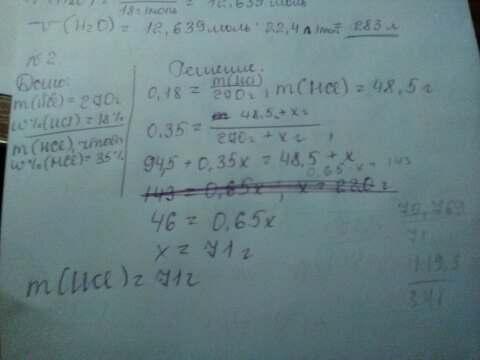 18 г/моль = 12,639 моль
V(H₂O) = 12,639 моль · 22,4 л/моль = 283 л
№2
Дано:
m(HCl) = 270 г
w%(HCl) = 18%
m(HCl), чтобы
w%(HCl) = 35%
Решение:
0,18 = m(HCl) / 270 г ; m(HCl) = 48,5 г
0,35 = 48,5 + x г / 270 г + x г ;
94,5 + 0,35x = 48,5 + x
0,65 · x = 143
143 = 0,65x ; x = 220 г
46 = 0,65x
x = 71 г
m(HCl) = 71 г
70,769
71